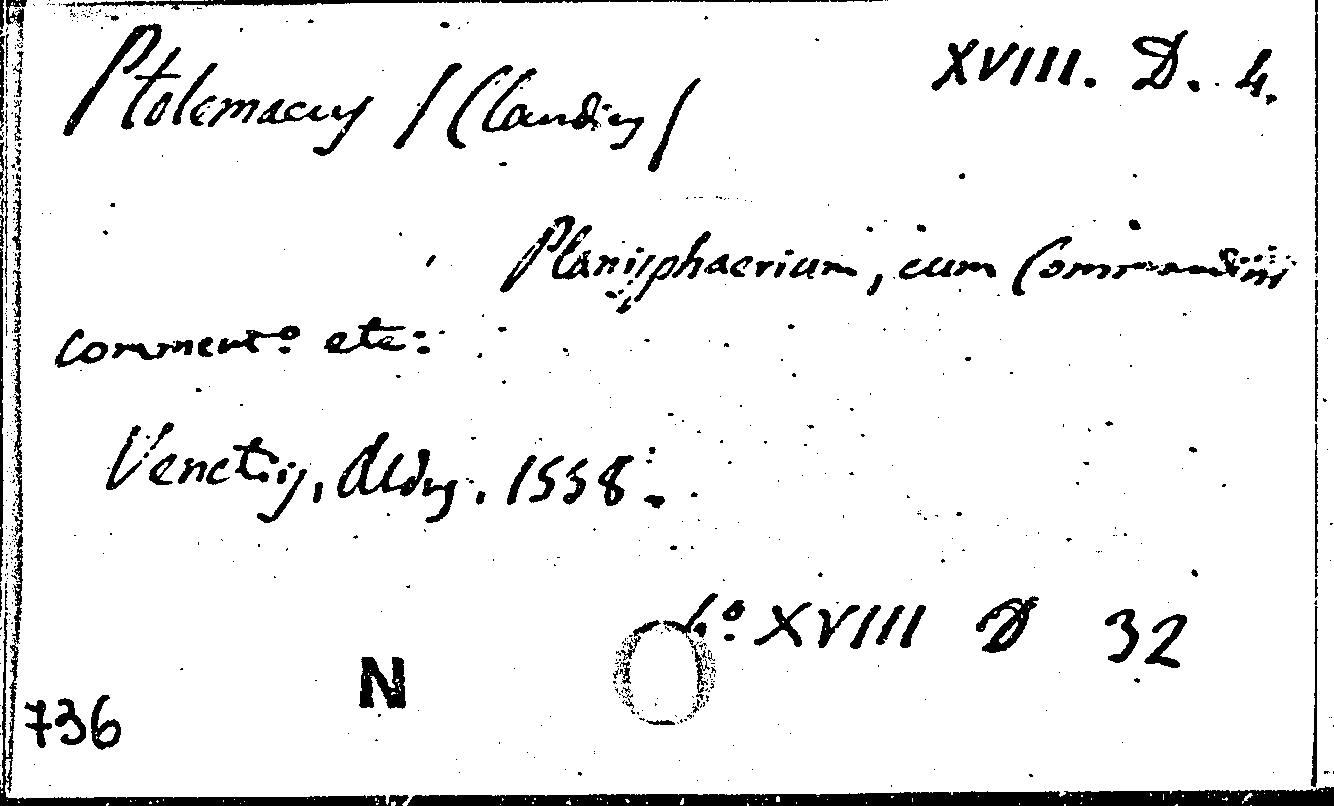 Ptolemaeus / (Claudius /
XVIII. D. 4.
Planisphaerium, cum Commandini
comment.º etc:
Venetijs, Aldus. 1558.
4.º XVIII D 32
N
736